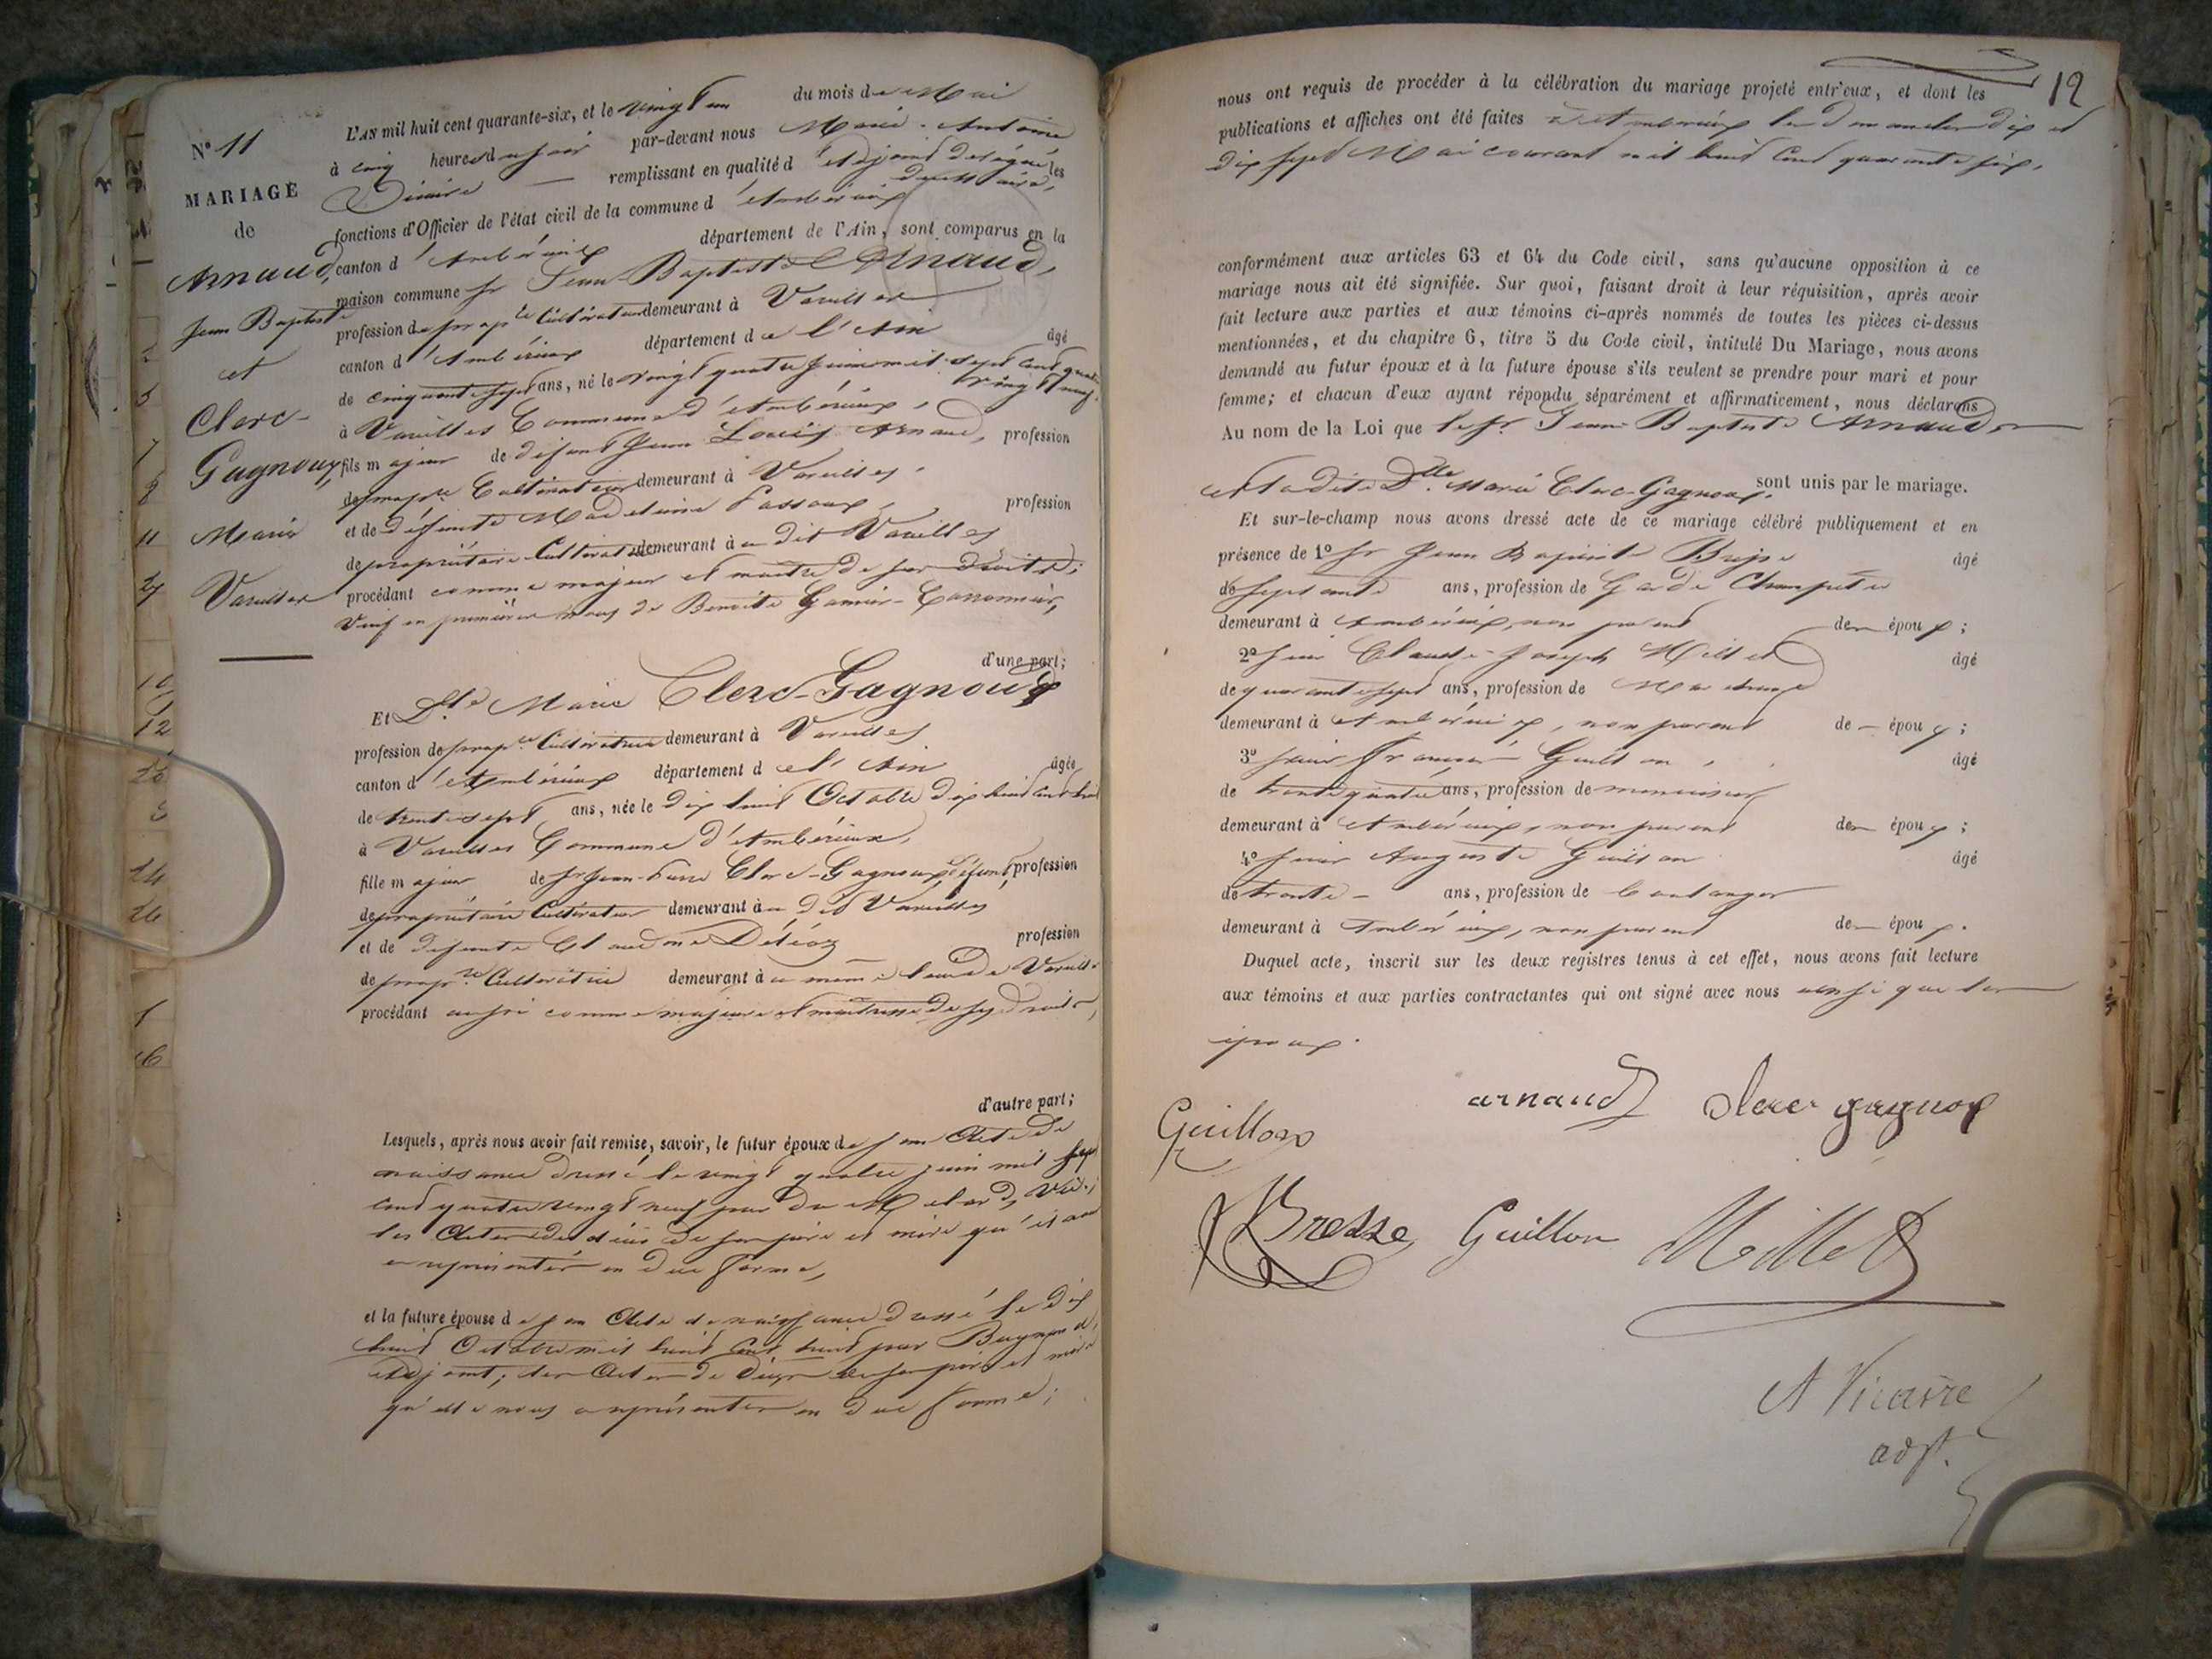 N° 11
MARIAGE
de
Arnaud,
Jean Baptiste
et
Clerc-
Gagnoux,
Marie
Vareilles
L'AN mil huit cent quarante-six, et le vingt un du mois de Mai
à cinq heures du soir par-devant nous Marie-Antoine
Vicaire remplissant en qualité d'Adjoint délégué les
du Maire,
fonctions d'Officier de l'état civil de la commune d'Ambérieux
canton d'Ambérieux département de l'Ain, sont comparus en la
maison commune Sr Jean Baptiste Arnaud,
profession de propre Cultivateur demeurant à Vareilles
canton d'Ambérieux département de l'Ain âgé
de cinquante sept ans, né le vingt quatre juin mil sept cent quatre
vingt neuf,
à Vareilles Commune d'Ambérieux,
fils majeur de défunt Jean Louis Arnaud, profession
de propre Cultivateur demeurant à Vareilles,
et de défunte Madeleine profession
de propriétaire Cultivateur demeurant à au dit Vareilles
procédant comme majeur et maître de ses droits;
Veuf en premières noces de Benoite
d'une part;
Et Dlle Marie Clerc-Gagnoux
profession de propre Cultivatrice demeurant à Vareilles
canton d'Ambérieux département de l'Ain âgée
de trente sept ans, née le dix huit Octobre dix huit cent huit
à Vareilles Commune d'Ambérieux,
fille majeur de Sr Jean-Pierre Clerc-Gagnoux, défunt, profession
de propriétaire Cultivateur demeurant à au dit Vareilles
et de défunte Claudine profession
de propre Cultivatrice demeurant à au même lieu de Vareilles
procédant aussi comme majeure et maîtresse de ses droits,
d'autre part;
Lesquels, après nous avoir fait remise, savoir, le futur époux de son Acte de
naissance dressé le vingt quatre juin mil sept
cent quatre vingt neuf par
les Actes de décès de ses père et mère qu'il nous
a représentés en due forme,
et la future épouse de son Acte de naissance dressé le dix
huit Octobre mil huit cent huit par
Adjoint; les Actes de décès de ses père et mère
qu'elle nous a représentés en due forme;
12
nous ont requis de procéder à la célébration du mariage projeté entr'eux, et dont les
publications et affiches ont été faites à Ambérieux les dimanches dix et
dix sept Mai courant mil huit cent quarante six,
conformément aux articles 63 et 64 du Code civil, sans qu'aucune opposition à ce
mariage nous ait été signifiée. Sur quoi, faisant droit à leur réquisition, après avoir
fait lecture aux parties et aux témoins ci-après nommés de toutes les pièces ci-dessus
mentionnées, et du chapitre 6, titre 5 du Code civil, intitulé Du Mariage, nous avons
demandé au futur époux et à la future épouse s'ils veulent se prendre pour mari et pour
femme; et chacun d'eux ayant répondu séparément et affirmativement, nous déclarons
Au nom de la Loi que le Sr Jean Baptiste Arnaud
et la dite Dlle Marie Clerc-Gagnoux, sont unis par le mariage.
Et sur-le-champ nous avons dressé acte de ce mariage célébré publiquement et en
présence de 1° Sr Jean Baptiste Bresse âgé
de septante ans, profession de Garde Champêtre
demeurant à Ambérieux, non parent des époux;
2° Sieur Claude-Joseph Millet âgé
de quarante sept ans, profession de
demeurant à Ambérieux, non parent des époux;
3° Sieur François Guillon, âgé
de trente quatre ans, profession de menuisier,
demeurant à Ambérieux, non parent des époux;
4° Sieur Auguste Guillon âgé
de trente ans, profession de boulanger
demeurant à Ambérieux, non parent des époux.
Duquel acte, inscrit sur les deux registres tenus à cet effet, nous avons fait lecture
aux témoins et aux parties contractantes qui ont signé avec nous ainsi que les
époux.
arnaud clerc gagnox
Guillon
Bresse Guillon Millet
A Vicaire
adjt.